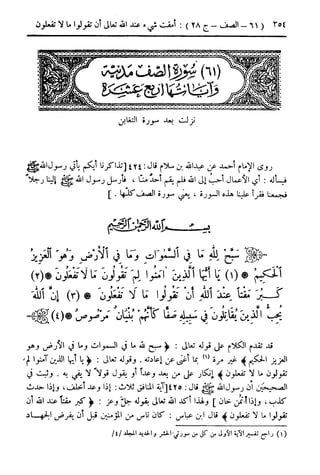 ٣٥٤ (٦١ – الصف – ج ٢٨) : أمقت شيء عند الله تعالى أن تقولوا ما لا تفعلون
(٦١) سورة الصف مدنية
وآياتها اربع عشرة
نزلت بعد سورة التغابن
روى الإمام أحمد عن عبدالله بن سلام قال: ٤٢٤ [تذاكرنا أيكم يأتي رسول الله ﷺ
فيسأله : أي الأعمال أحب إلى الله فلم يقم أحد منا ، فأرسل رسول الله ﷺ إلينا رجلاً
فجمعنا فقرأ علينا هذه السورة ، يعني سورة الصف كلها . ]
بسم الله الرحمن الرحيم
سَبَّحَ لِلَّهِ مَا فِي السَّمَوَاتِ وَمَا فِي الْأَرْضِ وَهُوَ الْعَزِيزُ
الْحَكِيمُ * (١) يَا أَيُّهَا الَّذِينَ آمَنُوا لِمَ تَقُولُونَ مَا لَا تَفْعَلُونَ * (٢)
كَبُرَ مَقْتًا عِنْدَ اللَّهِ أَنْ تَقُولُوا مَا لَا تَفْعَلُونَ * (٣) إِنَّ اللَّهَ
يُحِبُّ الَّذِينَ يُقَاتِلُونَ فِي سَبِيلِهِ صَفًّا كَأَنَّهُمْ بُنْيَانٌ مَرْصُوصٌ * (٤)
قد تقدم الكلام على قوله تعالى : ﴿ سبح لله ما في السموات وما في الأرض وهو
العزيز الحكيم ﴾ غير مرة (١) بما أغنى عن إعادته . وقوله تعالى : ﴿ يا أيها الذين آمنوا لم
تقولون ما لا تفعلون ﴾ إنكار على من يعد وعداً أو يقول قولاً لا يفي به . وثبت في
الصحيحين أن رسول الله ﷺ قال: ٤٢٥ [آية المنافق ثلاث: إذا وعد أخلف، وإذا حدث
كذب ، وإذا أئتمن خان ] ولهذا أكد الله تعالى بقوله جل وعز : ﴿ كبر مقتاً عند الله أن
تقولوا ما لا تفعلون ﴾ قال ابن عباس : كان ناس من المؤمنين قبل أن يفرض الجهاد
(١) راجع تفسير الآية الأولى من كل من سورتي الحشر والحديد المجلد /٤/